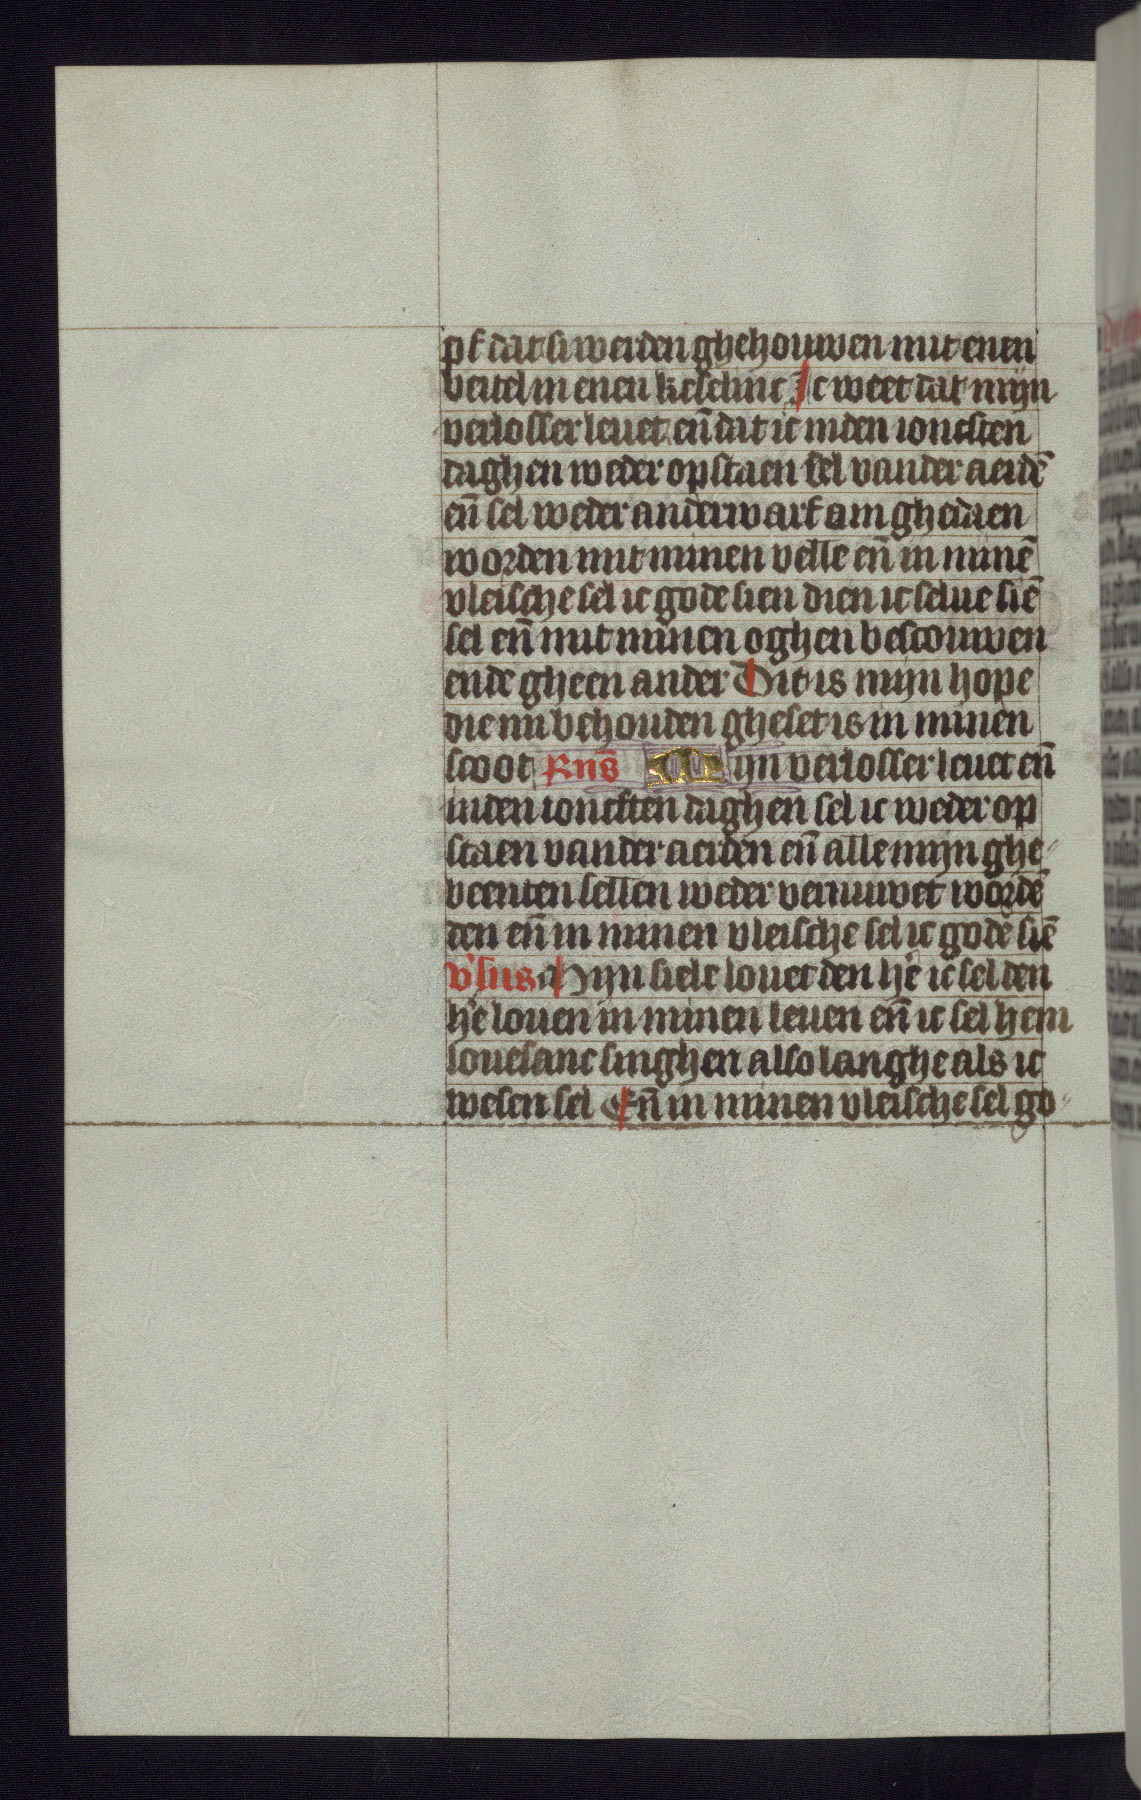 pf dat si werden ghehouwen mit enen
beitel in enen keselinc Ic weet dat mijn
verlosser leuet eñ dat ic inden ioncsten
daghen weder opstaen sel vander aerdē
eñ sel weder anderwarf am ghedaen
worden mit minen velle eñ in minē
vleische sel ic gode sien dien ic selue siē
sel eñ mit minen oghen bescouwen
ende gheen ander Dit is mijn hope
die mi behouden gheset is in minen
scoot Rūs Mijn verlosser leuet eñ
inden ioncsten daghen sel ic weder op
staen vander aerden eñ alle mijn ghe
beenten sellen weder vernuwet wordē
den eñ in minen vleische sel ic gode siē
v'sus Mijn siele louet den h'e ic sel den
h'e louen in minen leuen eñ ic sel hem
louesanc singhen also langhe als ic
wesen sel Eñ in minen vleische sel go